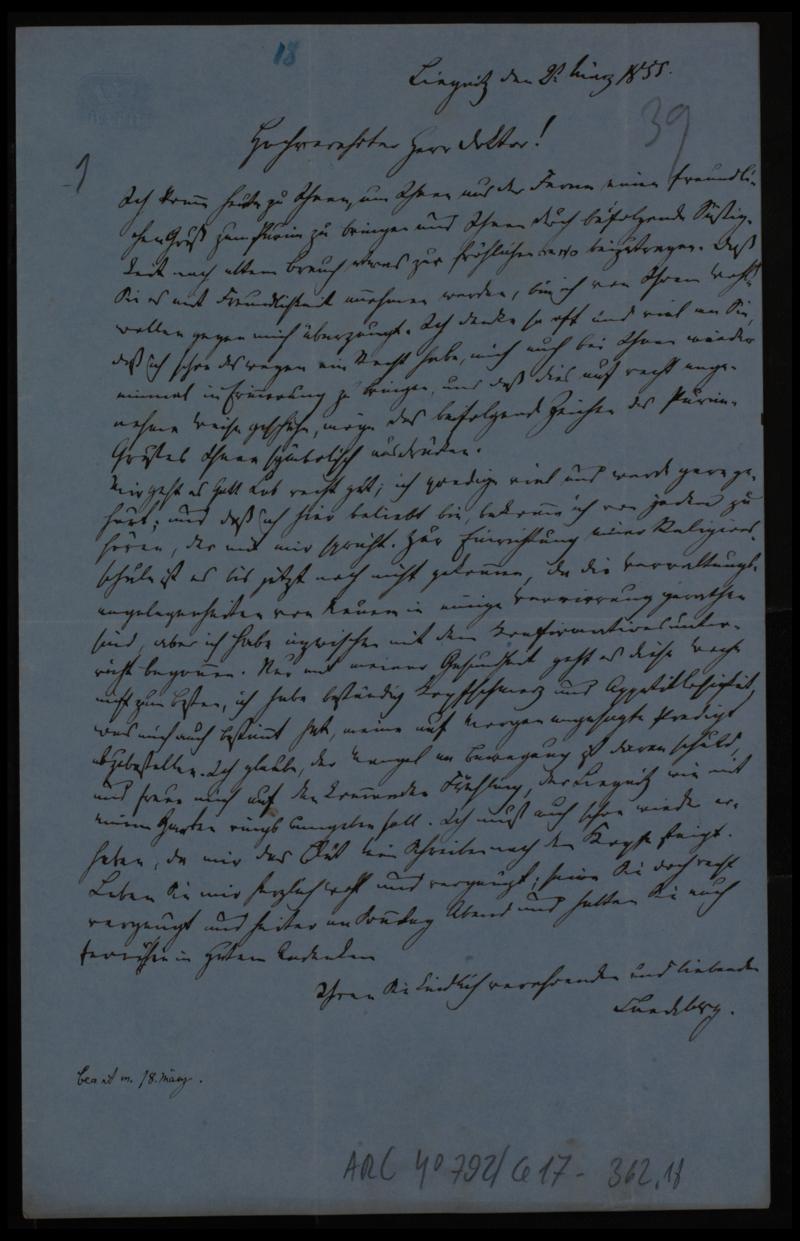 18
Liegnitz den 2. März 1855.
39
Hochverehrter Herr Doktor!
1
Ich komme heute zu Ihnen, um Ihnen aus der Ferne einen freundli-
chen Gruß zum Purim zu bringen und Ihnen durch beifolgende Süßig-
keit nach altem Brauch etwas zur fröhlichen beizutragen. Daß
Sie es mit Freundlichkeit annehmen werden, bin ich von Ihrem Wohl-
wollen gegen mich überzeugt. Ich denke so oft und viel an Sie,
daß ich schon deswegen ein Recht habe, mich auch bei Ihnen wieder
einmal in Erinnerung zu bringen, und daß dies auf recht ange-
nehme Weise geschehe, möge das beifolgende Zeichen des Purim-
Grußes Ihnen symbolisch ausdrücken.
Mir geht es Gott Lob recht gut; ich predige viel und werde gern ge-
hört; und daß ich hier beliebt bin, bekomme ich von jedem zu
hören, der mit mir spricht. Zur Einrichtung einer Religions-
schule ist es bis jetzt noch nicht gekommen, da die Verwaltungs-
angelegenheiten von Neuem in einige Verwirrung gerathen
sind, aber ich habe inzwischen mit dem Konfirmationsunter-
richt begonnen. Nur mit meiner Gesundheit geht es diese Woche
nicht zum Besten, ich habe beständig Kopfschmerz und Appetitlosigkeit,
was mich auch bestimmt hat, meine auf Morgen angesagte Predigt
abzubestellen. Ich glaube, der Mangel an Bewegung ist daran schuld,
und freue mich auf den kommenden Frühling, der Liegnitz wie mit
einem Garten rings umgeben soll. Ich muß auch schon wieder
da mir das Blut beim Schreiben nach dem Kopfe steigt.
Leben Sie mir herzlich wohl und vergnügt; seien Sie doch recht
vergnügt und heiter am Sonntag Abend und halten Sie auch
ferner in gutem Andenken
Ihren Sie kindlich verehrenden und liebenden
Landsberg.
18. März.
ARC 4° 792/Ce 17- 362,18